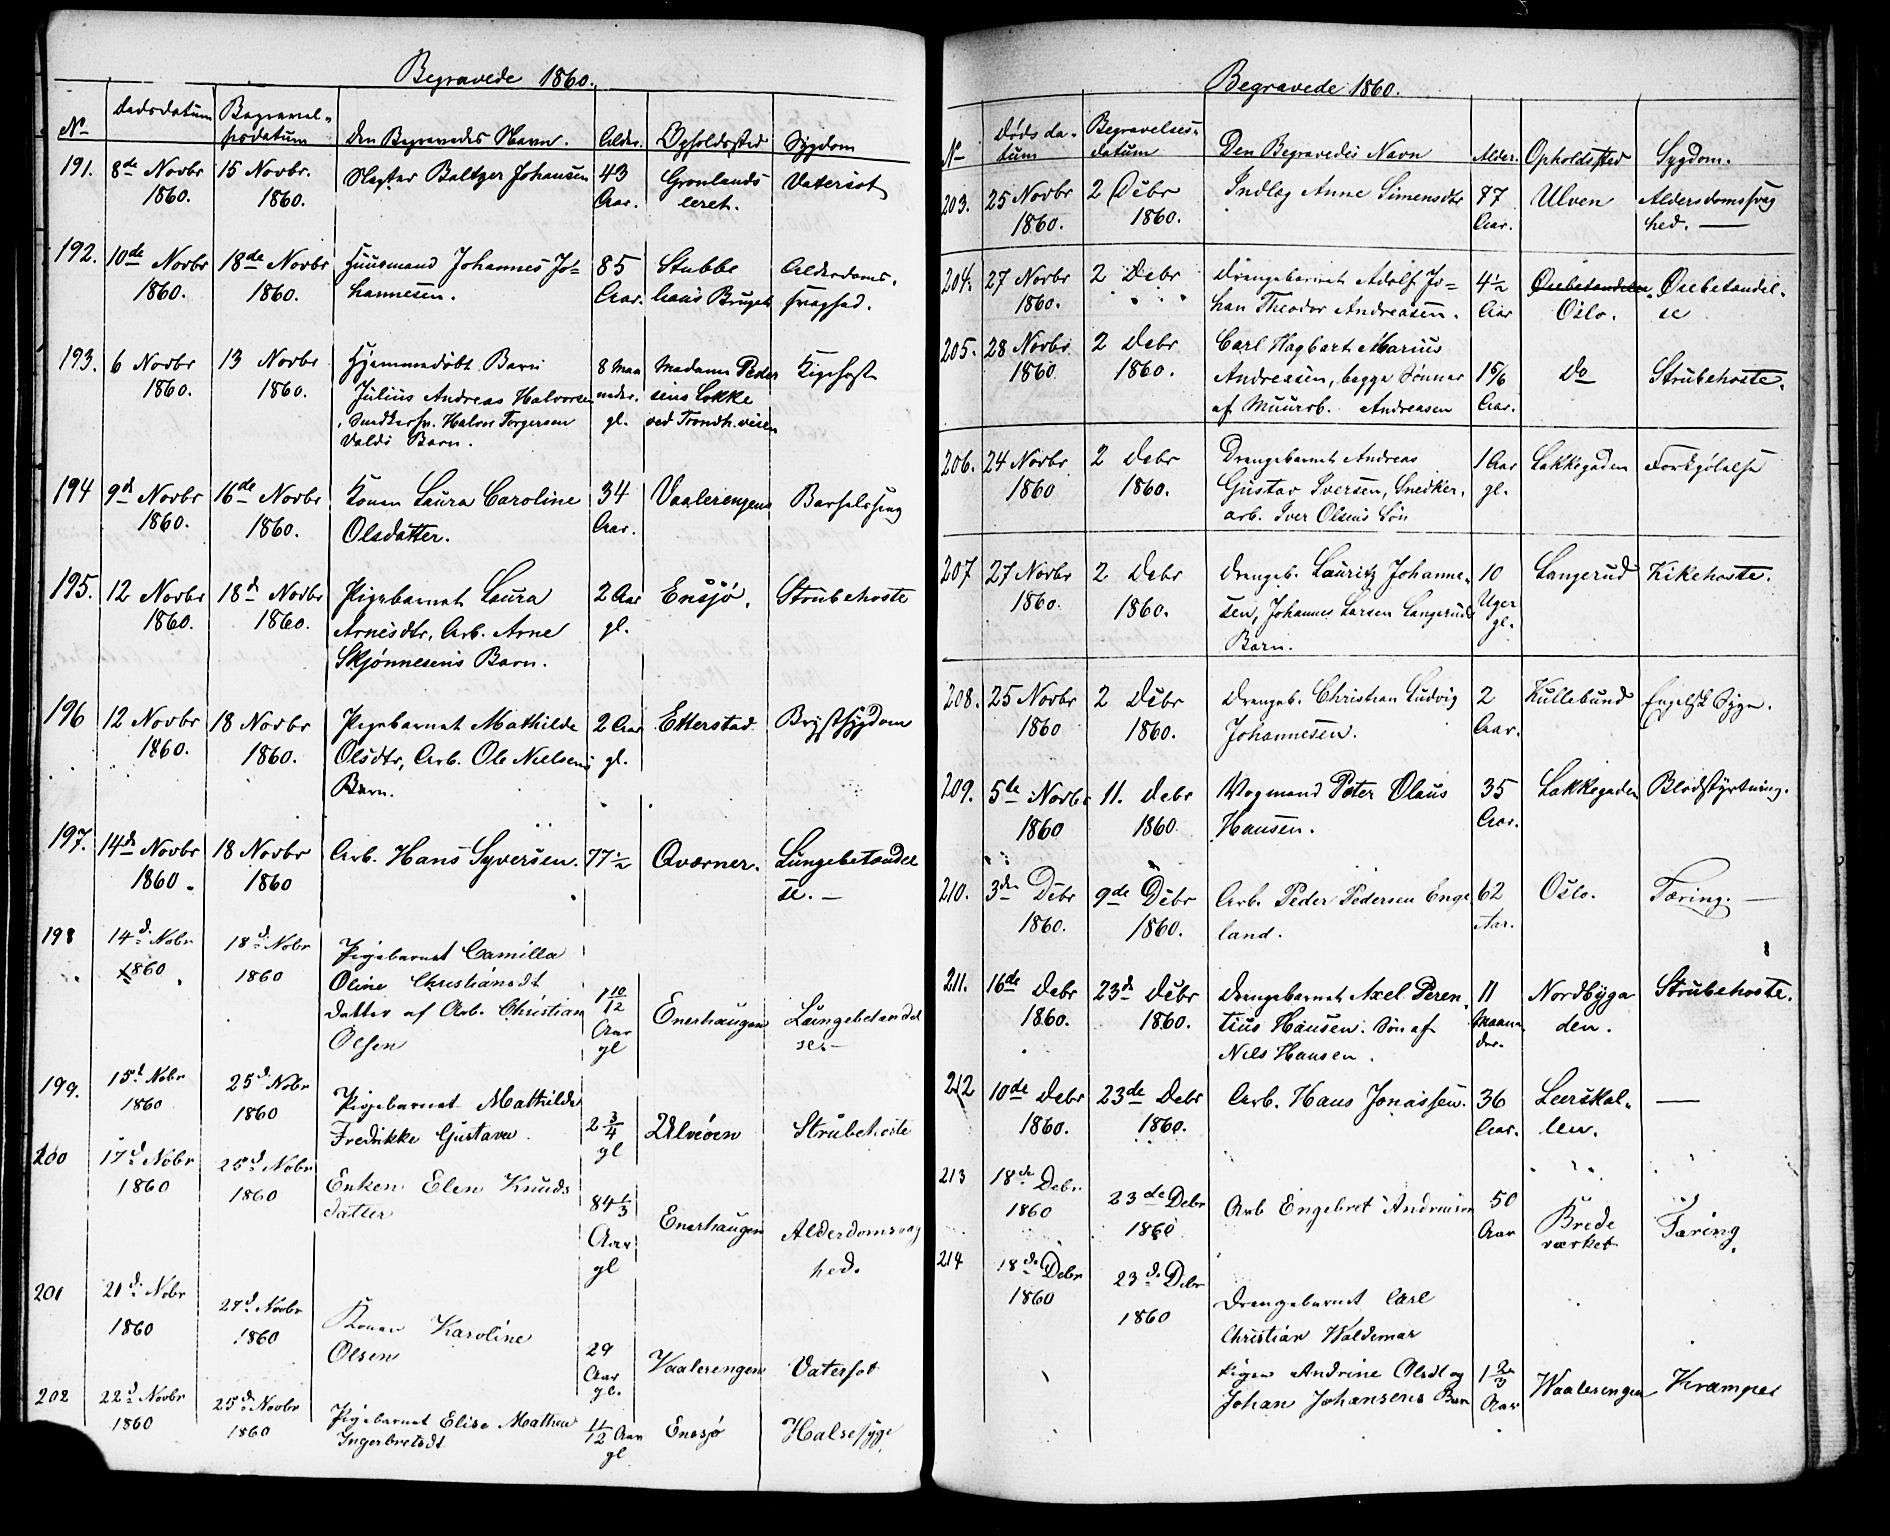 Begravede 1860.
No Dødsdatum Begravelsesdatum Den Begravedes Navn. Alder. Opholdssted Sygdom
191. 8de Novbr 15 Novbr. Baltzer Johansen 43 Grønlands Vatersot
1860. 1860. Aar. leret.
192. 10de Novbr 18de Novbr Huusmand Johannes Jo= 85 Stubbe Alderdoms.
1860. 1860. hannesen. Aar. haus Bruget svaghed.
193. 6 Novbr 13 Novbr Hjemmedøbt Barn 8 Maa Madame Peder Kighoste
1860. 1860. Julius Andreas Halvorsen neder. sens Løkke
Halvor Torgersen gl. ved Trondh.veien
Barn.
194 9d Novbr 16de Novbr Konen Laura Caroline 34 Vaalerengen Barselsseng
1860. 1860. Olsdatter. Aar.
195. 12 Novbr 18d Novbr Pigebarnet Laura 2 Aar Ensjø. Strubehoste
1860. 1860. Arnesdtr, Arb. Arne gl.
Skjønnesens Barn.
196 12 Novbr 18 Novbr Pigebarnet Mathilde 2 Aar Etterstad Brystsygdom
1860. 1860. Olsdtr, Arb. Ole Nielsens gl.
Barn.
197. 14de Novbr 18 Novbr Arb. Hans Syversen. 77½ Qværner. Lungebetændel
1860. 1860 se. —
198 14d. Nobr 18d. Nobr Pigebarnet Camilla
1860 1860 Oline Christiansdt
Datter af Arb. Christian 1 10/12 Enerhaugen Lungebetændel
Olsen Aar gl se.-
199. 15d. Nobr 25d. Nobr Pigebarnet Mathilde
1860 1860 Fredrikke Gustava 2 3/4 gl Ulvøen Strubehoste
200 17d. Nobr 25d. Nobr Enken Elen Knuds
1860 1860 datter 84 1/3 Enerhaugen Alderdomsvag
Aar gl hed.
201 21d. Nobr 27d. Novbr Konen Karoline
1860 1860 Olsen 29 Aar gl. Vaalerengen Vatersot
202 22d. Novbr 25d. Novbr Pigebarnet Elise Mathea 11/12 Aar Ensjø Halsesyge
1860 1860 Ingerbretsdt gl
Begravede 1860.
No Døds da- Begravelses- Den Begravedes Navn Alder. Opholdssted Sygdom.
tum datum
203. 25 Novbr 2 Debr Indlæg Anne Simensdtr 87 Ulven Aldersdomssvag
1860. 1860. Aar. hed. —
204. 27 Novbr 2 Debr Drengebarnet Adolf Jo= 4½ Ørebetændelse
1860. han Theodor Andreasen. Aar Oslo. se
205. 28 Novbr 2 Debr Carl Hagbart Marius
1860 1860. Andreasen, begge Sønner 1 5/6 Do Strubehoste.
af Muurarb. Andreasen Aar.
206. 24 Novbr 2 Debr Drengebarnet Andreas 1 Aar Lakkegaden Forkjølelse
1860 1860. Gustav Iversen, Snedker. gl.
arb. Iver Olsens Søn
207 27 Novbr 2 Debr Drengeb. Lauritz Johanne- 10 Langerud Kikehoste.
1860. 1860. sen, Johannes Larsen Langeruds Uger gl.
Barn.
208. 25 Novbr 2 Debr Drengeb. Christian Ludvig 2 Kullebund Engelsk Syge.
1860 1860. Johannesen. Aar.
209. 5te Novbr 11. Debr Vogmand Peter Olaus 35 Lakkegaden Blodstyrtning.
1860 1860 Hansen. Aar.
210. 3de Debr 9de Debr Arb. Peder Pedersen Enge 62 Oslo. Tæring. —
1860. 1860. land. Aar.
211. 16de Debr 23d Debr Drengebarnet Axel Peren- 11 Nordbyga Strubehoste.
1860. 1860. tius Hansen. Søn af Maane der. den.
Nils Hansen.
212 10de Debr 23de Debr Arb. Hans Jonassen. 36 Leerskal- —
1860. 1860. Aar. len.
213 18de Debr 23de Debr Arb Engebret Andreasen 50 Brede Tæring.
1860 1860 Aar værket
214 18de Debr 23de Debr Drengebarnet Carl
1860 1860 Christian Waldemar
Pigen Andrine Olsdt og 1 2/3 Waalerengen Kramper
Johan Johansens Barn Aar